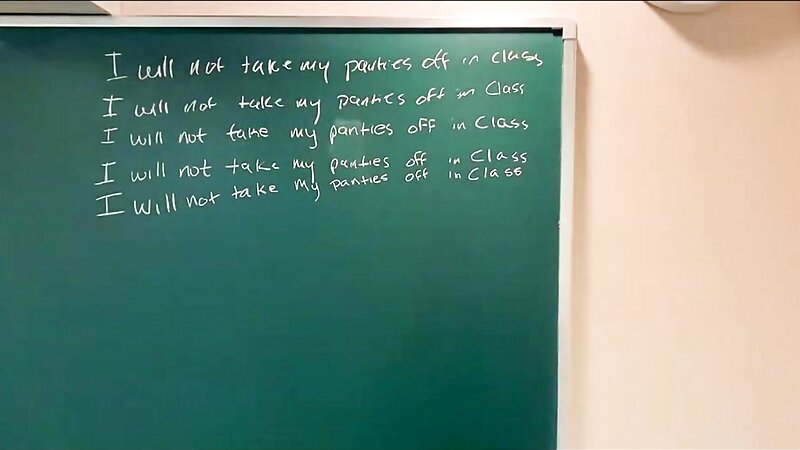 I will not take my panties off in class
I will not take my panties off in Class
I will not take my panties off in Class
I will not take my panties off in Class
I will not take my panties off in Class